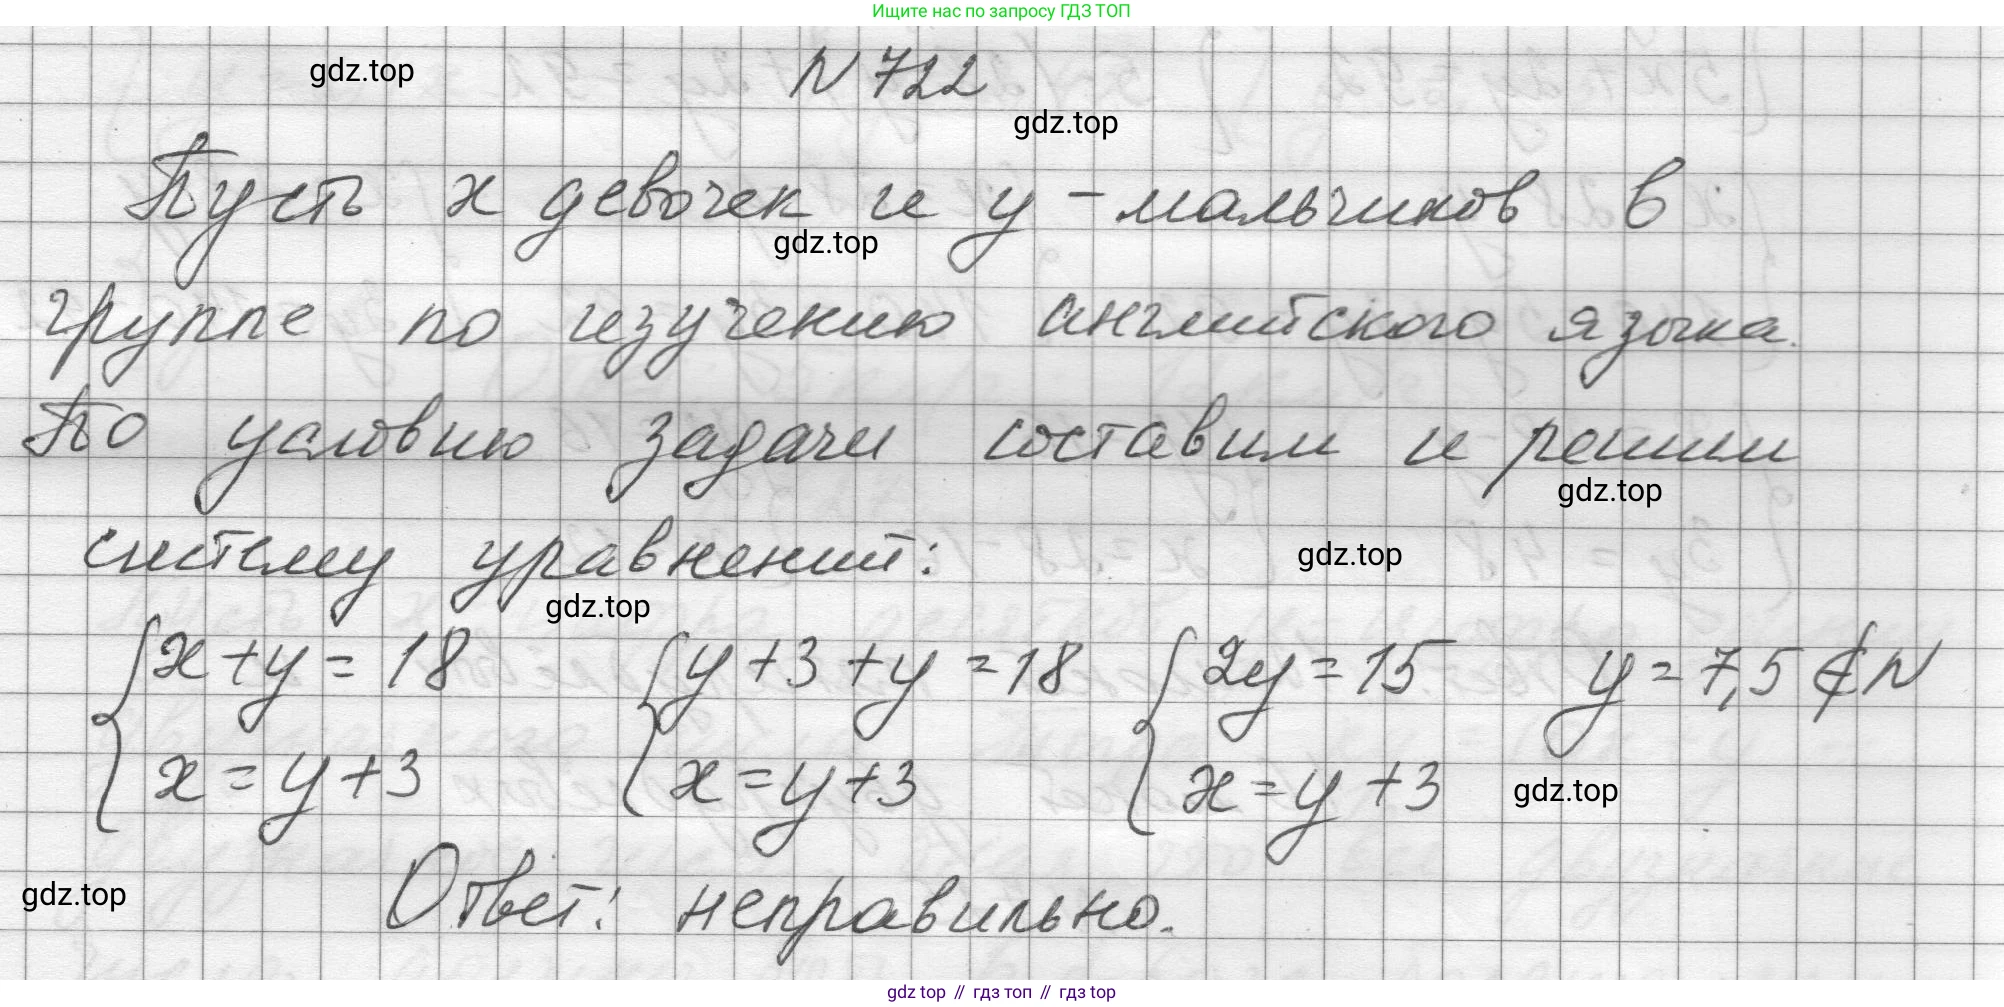 Ищите нас по запросу ГДЗ ТОП
gdz.top
N 722
gdz.top
Пусть x девочек и y - мальчиков в
gdz.top
группе по изучению английского языка.
По условию задачи составим и решим
gdz.top
систему уравнений:
gdz.top
gdz.top
{x+y=18 {y+3+y=18 {2y=15 y=7,5∉N
{x=y+3 {x=y+3 {x=y+3
gdz.top
gdz.top
Ответ: неправильно.
gdz top // гдз топ // гдз top